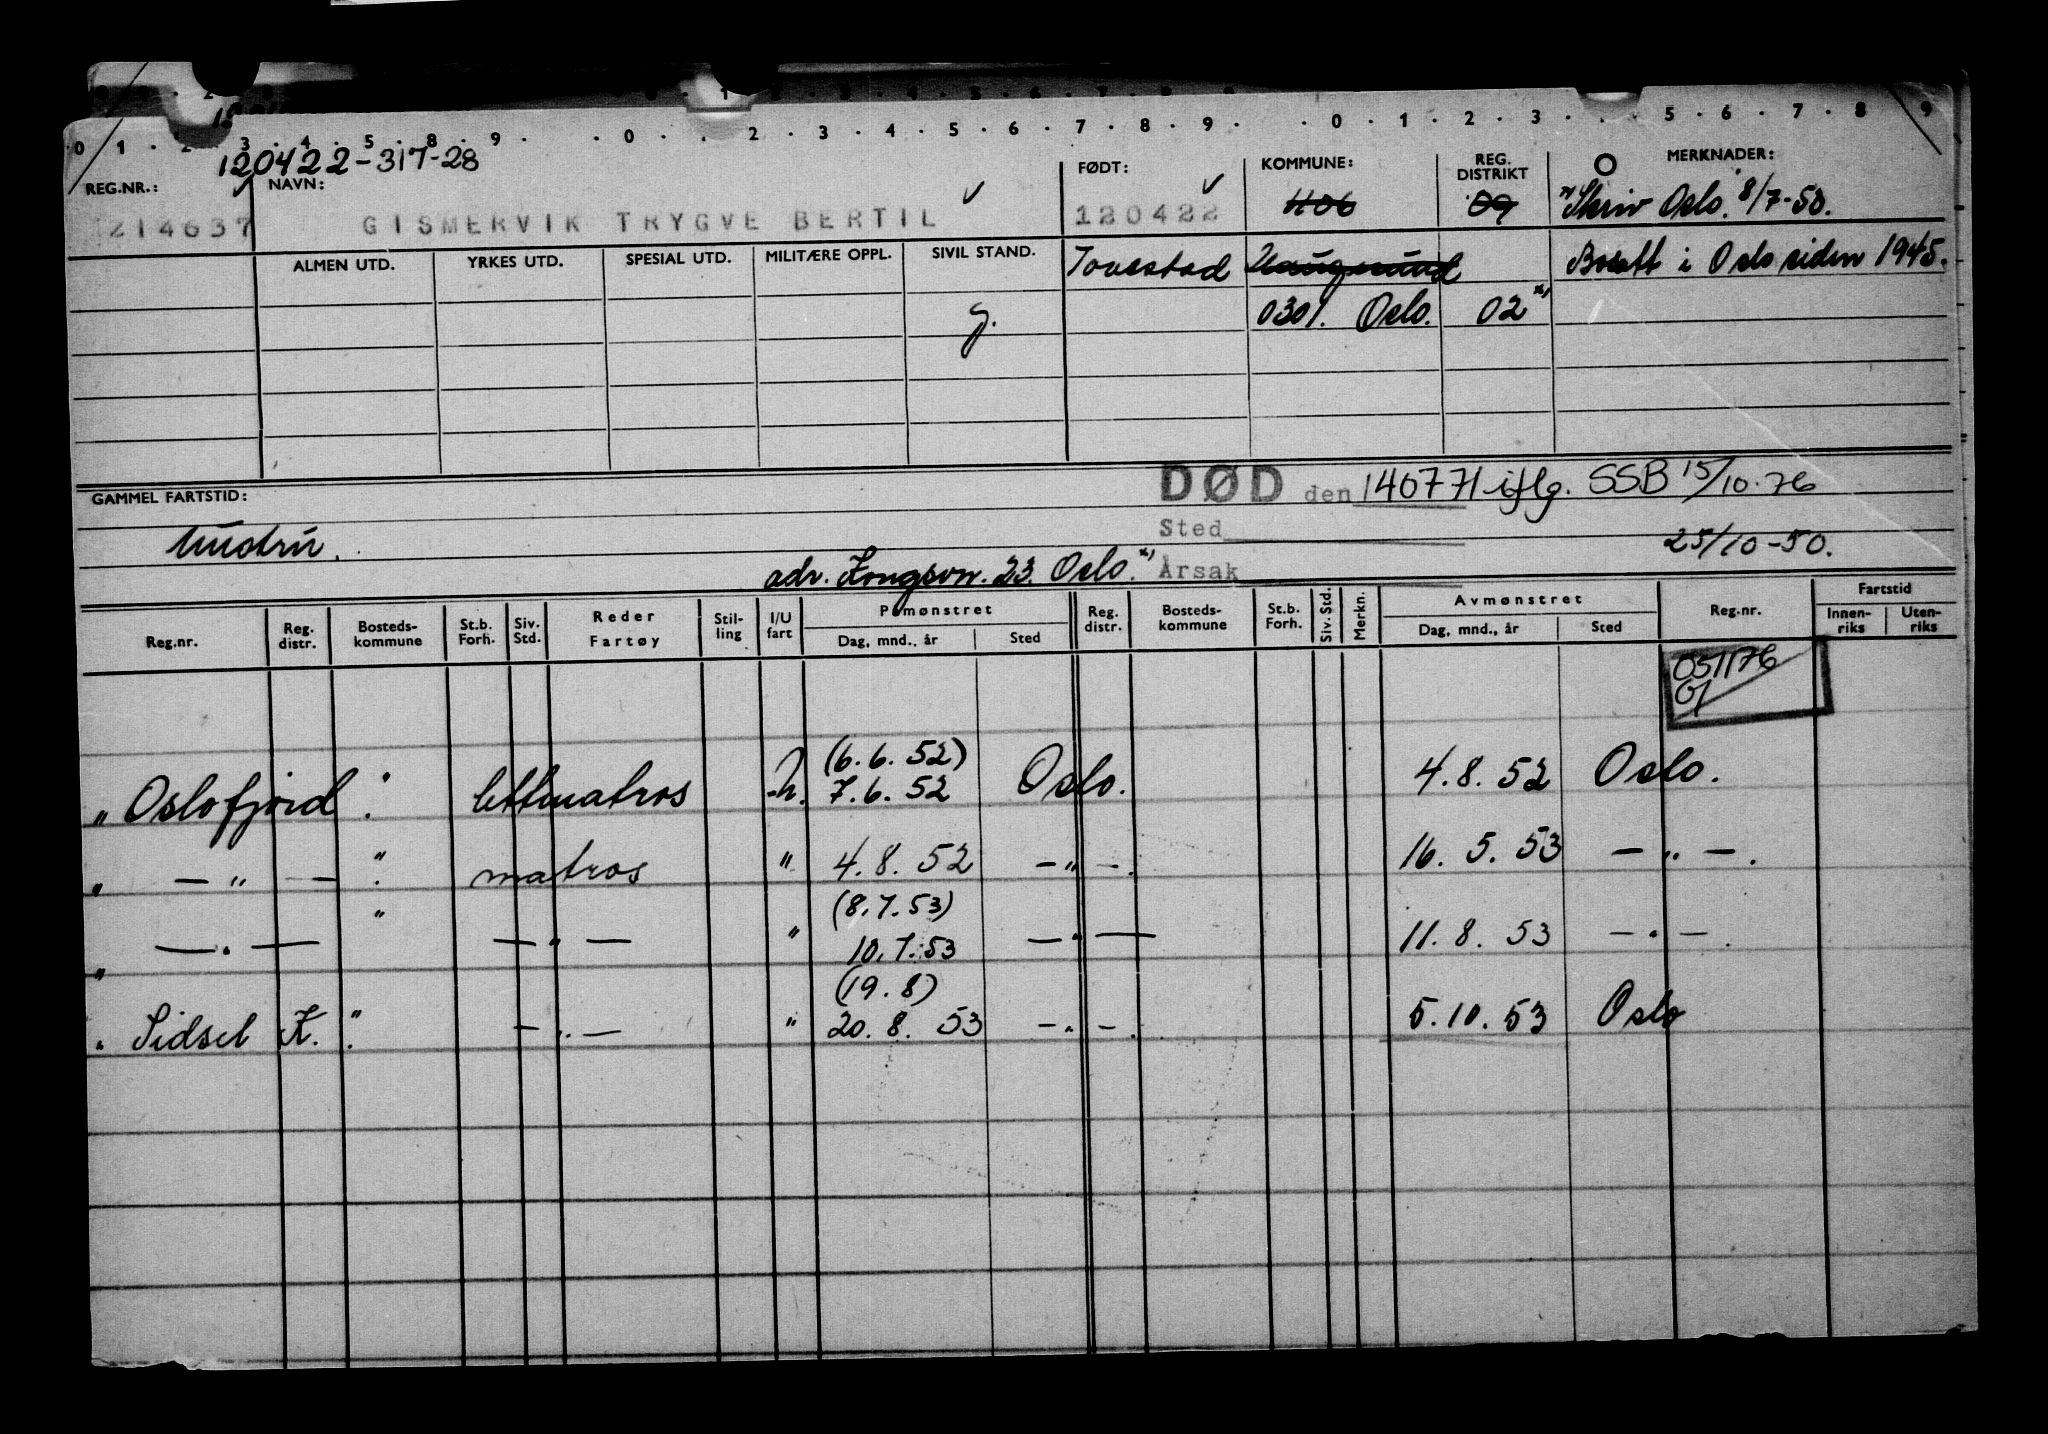 120422-317-28
REG.NR.: NAVN: FØDT: KOMMUNE: REG. DISTRIKT MERKNADER:
214637 GISMERVIK TRYGVE BERTIL 120422 1106 09 Skriv Oslo. 8/7-50.
ALMEN UTD. YRKES UTD. SPESIAL UTD. MILITÆRE OPPL. SIVIL STAND. Torvestad Haugesund Bosatt i Oslo siden 1945.
g. 0301. Oslo. 02 x)
GAMMEL FARTSTID: DØD den 140771 iflg. SSB 15/10-76
Sted 25/10-50.
adr. 23. Oslo. x) Årsak
Reg.nr. Reg. distr. Bosteds-kommune St.b. Forh. Siv. Std. Reder Fartøy Stil-ling I/U fart Påmønstret Dag, mnd., år Sted Reg. distr. Bosteds-kommune St.b. Forh. Siv. Std. Merkn. Avmønstret Dag, mnd., år Sted Reg.nr. Fartstid Innen-riks Uten-riks
051176
(6.6.52)
" Oslofjord". lettmatros 7.6.52 Oslo. 4.8.52 Oslo.
" — " — ". matros " 4.8.52 — " —. 16.5.53 — " —.
(8.7.53)
" — " — " — " — " 10.7.53 — " — 11.8.53 — " —.
(19.8)
" Sidsel K.". — " — " 20.8.53 — " —. 5.10.53 Oslo